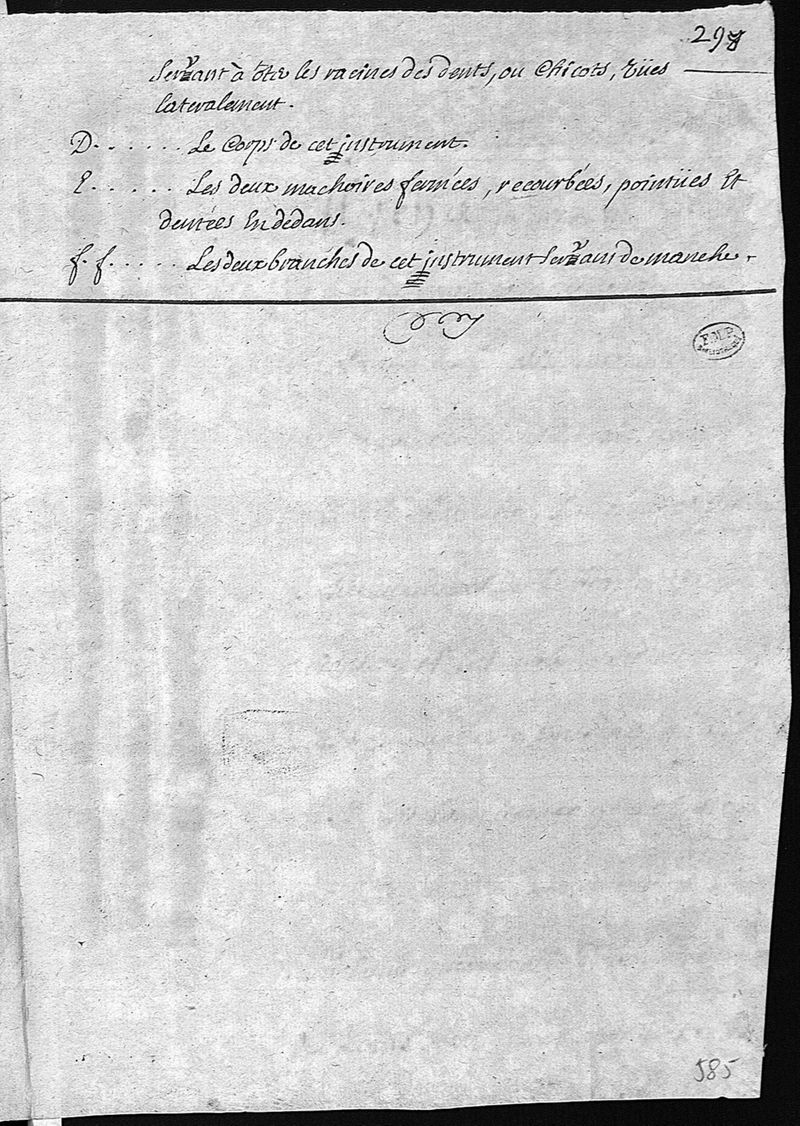 Servant à ôter les racines des dents, ou Chicots, vües
lateralement.
D. . . . . . Le Corps de cet instrument.
E. . . . . . Les deux machoires fermées, recourbées, pointües Et
dentées En dedans.
f. f. . . . . . Les deux branches de cet instrument Servans de manche.
F.M.P.
585